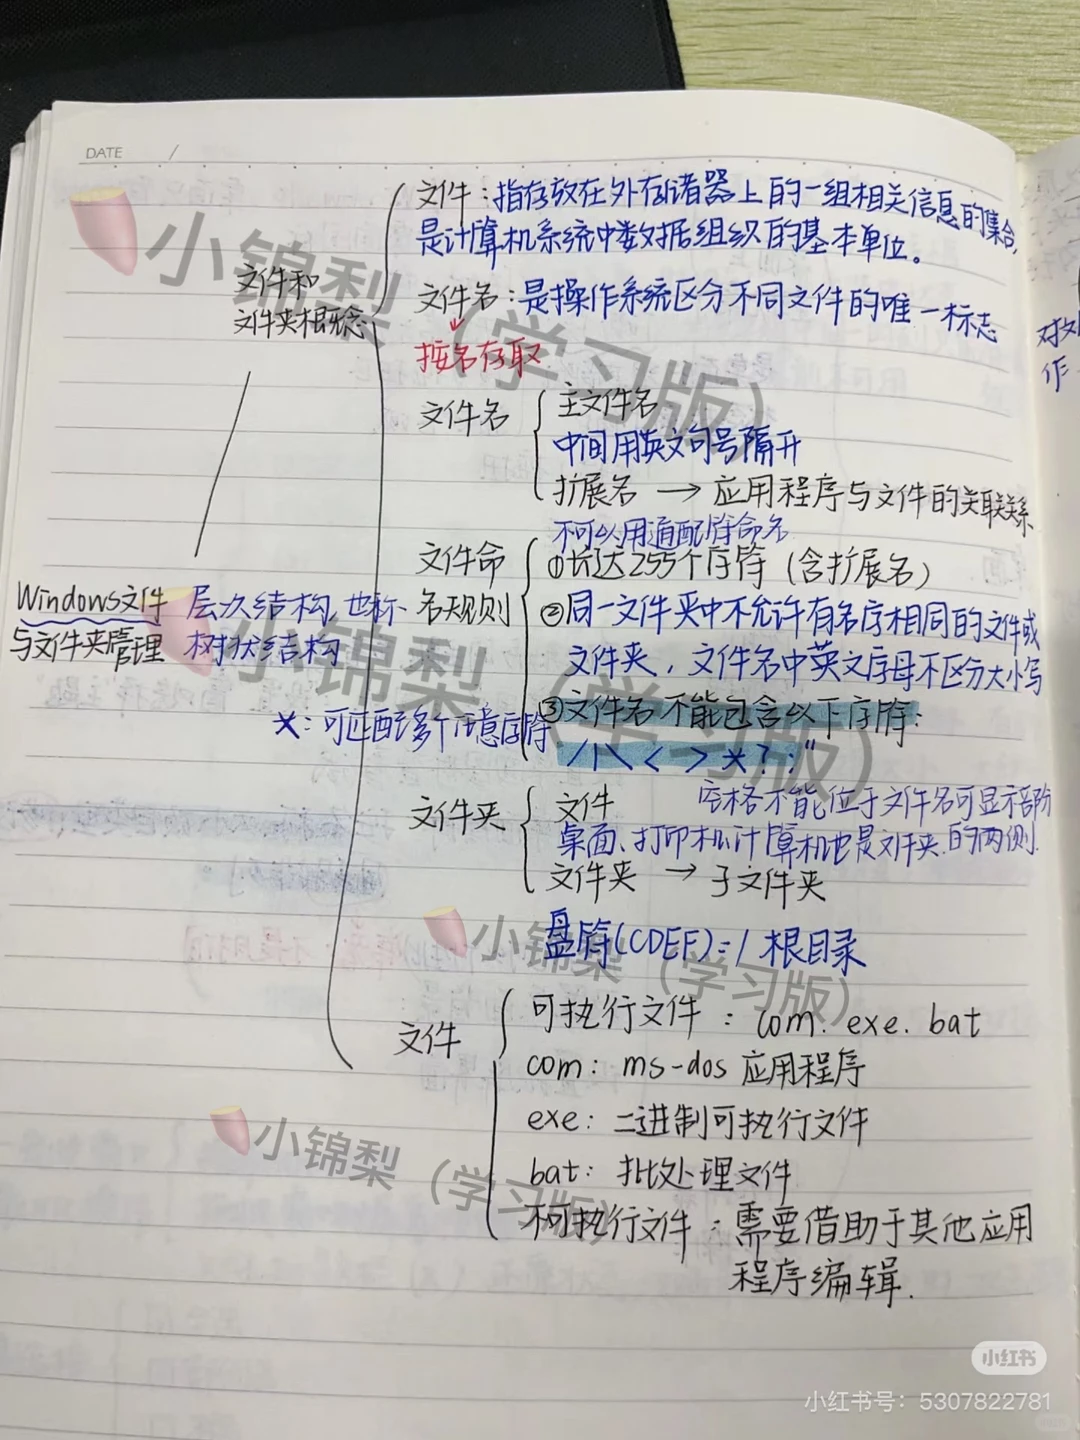 DATE /
文件：指存放在外存储器上的一组相关信息的集合，
是计算机系统中数据组织的基本单位。
文件和
文件夹概念
文件名：是操作系统区分不同文件的唯一标志
按名存取
文件名
主文件名
中间用英文句号隔开
扩展名 → 应用程序与文件的关联关系
不可以用通配符命名
文件命
名规则
①长达255个字符（含扩展名）
②同一文件夹中不允许有名字相同的文件或
文件夹，文件名中英文字母不区分大小写
③文件名不能包含以下字符：
/ | \ < > * ? : "
Windows文件
与文件夹管理
层次结构，也称
树状结构
*：可匹配多个任意字符
文件夹
文件
空格不能位于文件名可显示部阶
的两侧.
桌面、打印机计算机也是文件夹.
文件夹 → 子文件夹
盘符(CDEF)：/ 根目录
文件
可执行文件：com. exe. bat
com：ms-dos 应用程序
exe：二进制可执行文件
bat：批处理文件
不可执行文件：需要借助于其他应用
程序编辑.
对文
作
小锦梨（学习版）
小锦梨（学习版）
小锦梨（学习版）
小锦梨（学习版）
小红书
小红书号：5307822781